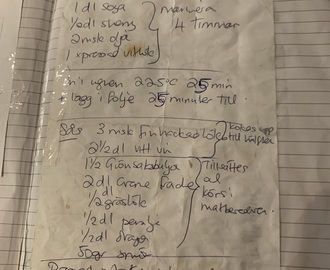 1 dl soya
1/2 dl sherry
2 msk olja
1 xpressad vitlök
marinera
4 timmar
in i ugnen 225°C 25 min
+ lägg i folje 25 minuter till
Sås 3 msk finhackad lök
2 1/2 dl vitt vin
kokas upp
till hälften
1 1/2 Grönsaksbuljong
2 dl creme fraiche
1/2 dl gräslök
1/2 dl persilja
1/2 dl dragon
50gr smör
Tillsättes
körs i
matberedaren